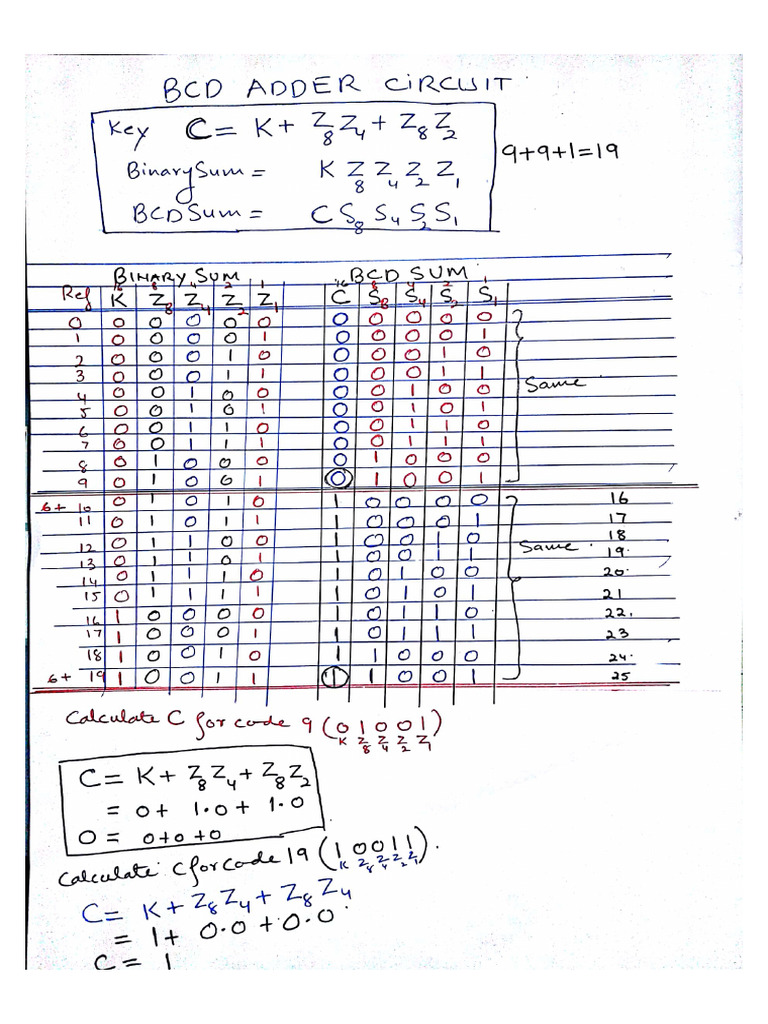 BCD ADDER CIRCUIT
Key C = K + Z8Z4 + Z8Z2
9+9+1=19
Binary Sum = K Z8 Z4 Z2 Z1
BCD Sum = C S8 S4 S2 S1
BINARY SUM BCD SUM
16 8 4 2 1 16 8 4 2 1
Ref K Z8 Z4 Z2 Z1 C S8 S4 S2 S1
0 0 0 0 0 0 0 0 0 0 0
1 0 0 0 0 1 0 0 0 0 1
2 0 0 0 1 0 0 0 0 1 0
3 0 0 0 1 1 0 0 0 1 1
4 0 0 1 0 0 0 0 1 0 0 Same
5 0 0 1 0 1 0 0 1 0 1
6 0 0 1 1 0 0 0 1 1 0
7 0 0 1 1 1 0 0 1 1 1
8 0 1 0 0 0 0 1 0 0 0
9 0 1 0 0 1 0 1 0 0 1
6+ 10 0 1 0 1 0 1 0 0 0 0 16
11 0 1 0 1 1 1 0 0 0 1 17
12 0 1 1 0 0 1 0 0 1 0 18
13 0 1 1 0 1 1 0 0 1 1 Same. 19.
14 0 1 1 1 0 1 0 1 0 0 20.
15 0 1 1 1 1 1 0 1 0 1 21
16 1 0 0 0 0 1 0 1 1 0 22.
17 1 0 0 0 1 1 0 1 1 1 23
18 1 0 0 1 0 1 1 0 0 0 24.
6+ 19 1 0 0 1 1 1 1 0 0 1 25
Calculate C for code 9 (01001)
K Z8 Z4 Z2 Z1
C = K + Z8Z4 + Z8Z2
= 0 + 1.0 + 1.0
0 = 0+0+0
Calculate C for code 19 (10011).
K Z8 Z4 Z2 Z1
C = K + Z8Z4 + Z8Z4
= 1 + 0.0 + 0.0.
C = 1